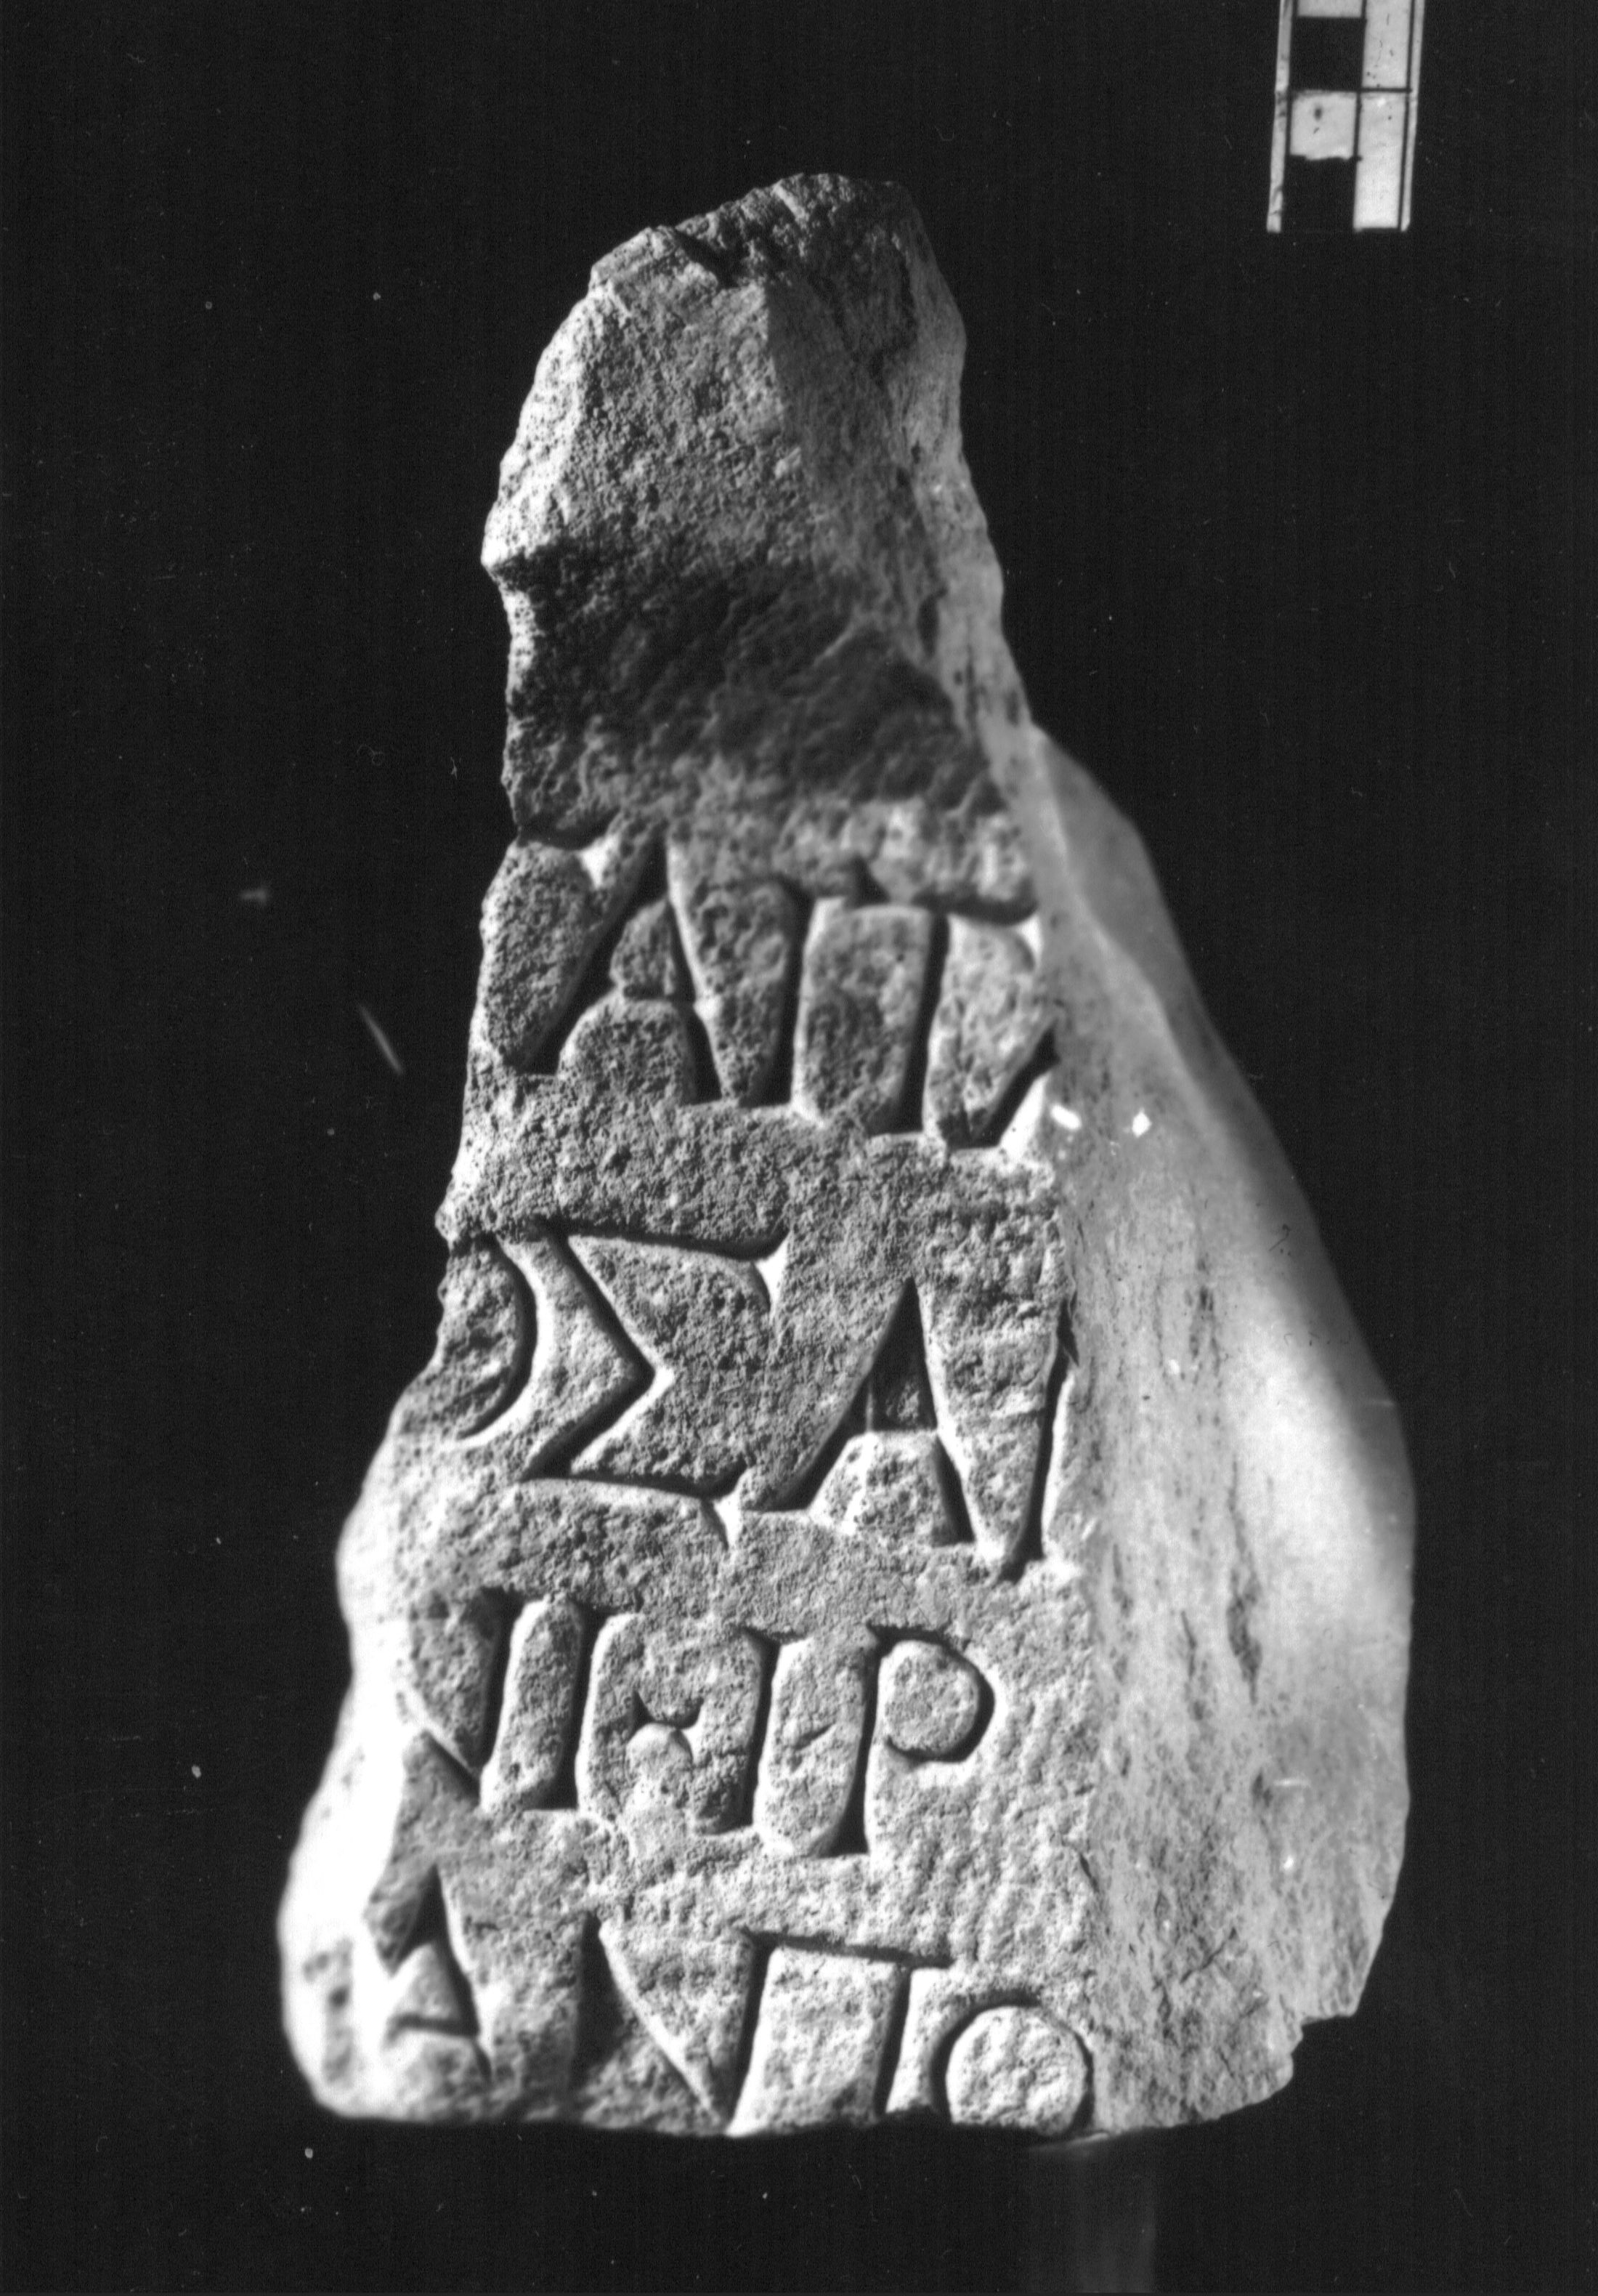 ΑΠ
ΟΣΑΙ
ΝΗΡ
ΑΝΤΟ